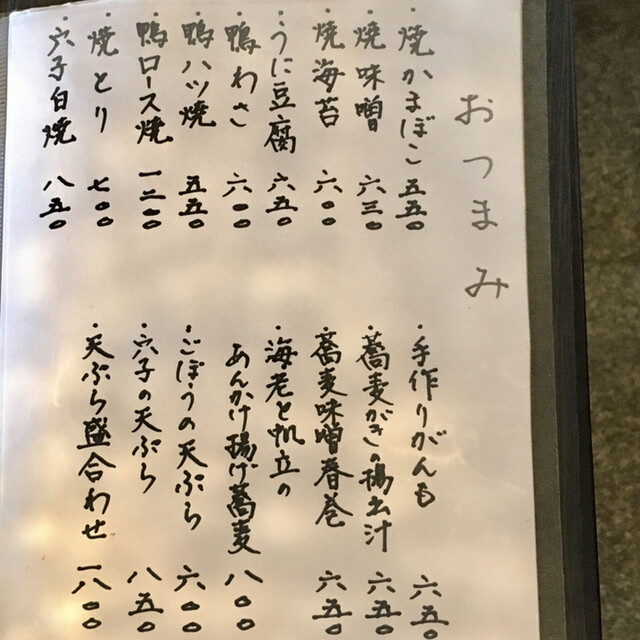 おつまみ
・焼かまぼこ 五五〇
・焼味噌 六三〇
・焼海苔 六〇〇
・うに豆腐 六五〇
・鴨わさ 六〇〇
・鴨ハツ焼 五五〇
・鴨ロース焼 一二〇〇
・焼とり 七〇〇
・穴子白焼 八五〇
・手作りがんも 六五〇
・蕎麦がきの揚出汁 六五〇
・蕎麦味噌春巻 六五〇
・海老と帆立の
あんかけ揚げ蕎麦 八〇〇
・ごぼうの天ぷら 六〇〇
・穴子の天ぷら 八五〇
・天ぷら盛合わせ 一八〇〇